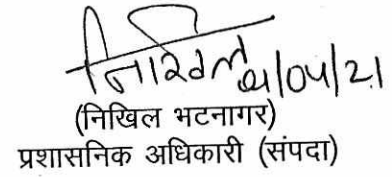 निखिल
(निखिल भटनागर)
प्रशासनिक अधिकारी (संपदा)